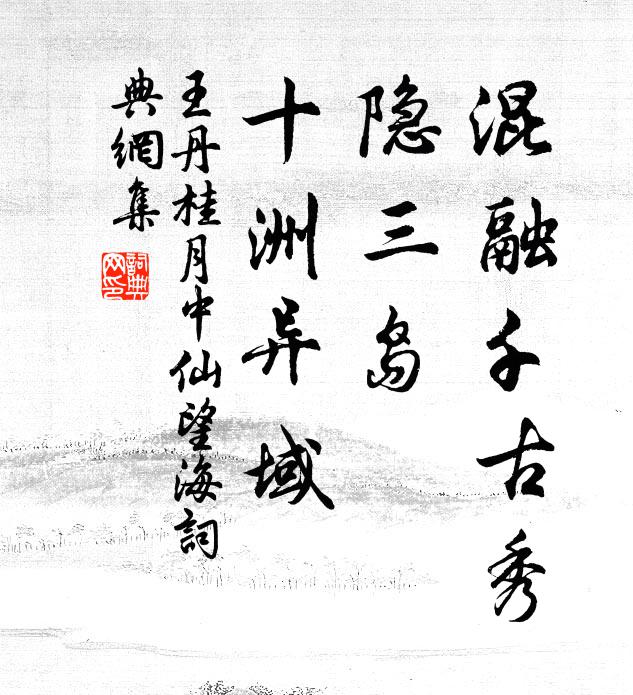 混融千古秀
隐三岛
十洲异域
王丹桂月中仙望海詞
典網集
詞典
网印